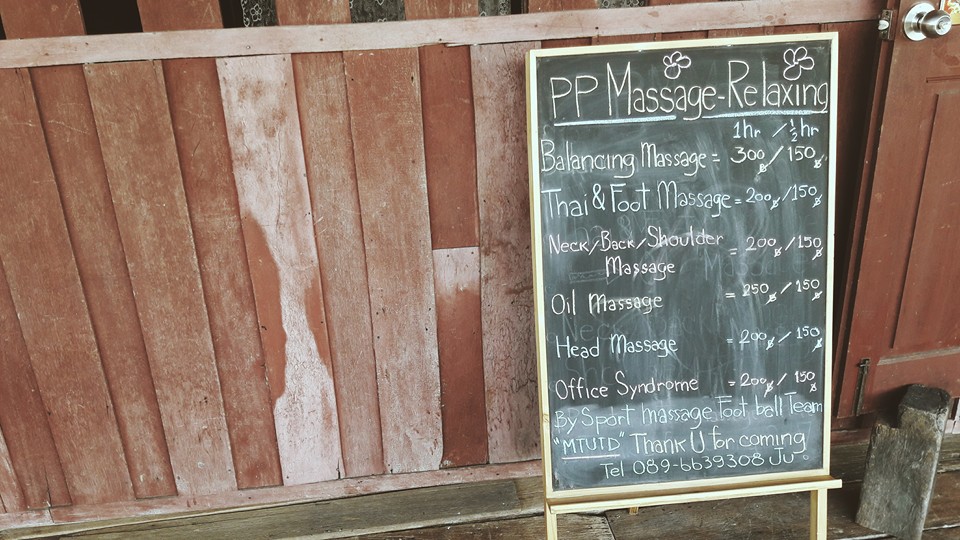 PP Massage-Relaxing
1hr / ½ hr
Balancing Massage = 300฿ / 150฿
Thai & Foot Massage = 200฿ / 150฿
Neck/Back/Shoulder
Massage = 200฿ / 150฿
Oil Massage = 250฿ / 150฿
Head Massage = 200฿ / 150฿
Office Syndrome = 200฿ / 150฿
By Sport massage Foot ball Team
"MTUTD" Thank U for coming
Tel 089-6639308 Ju